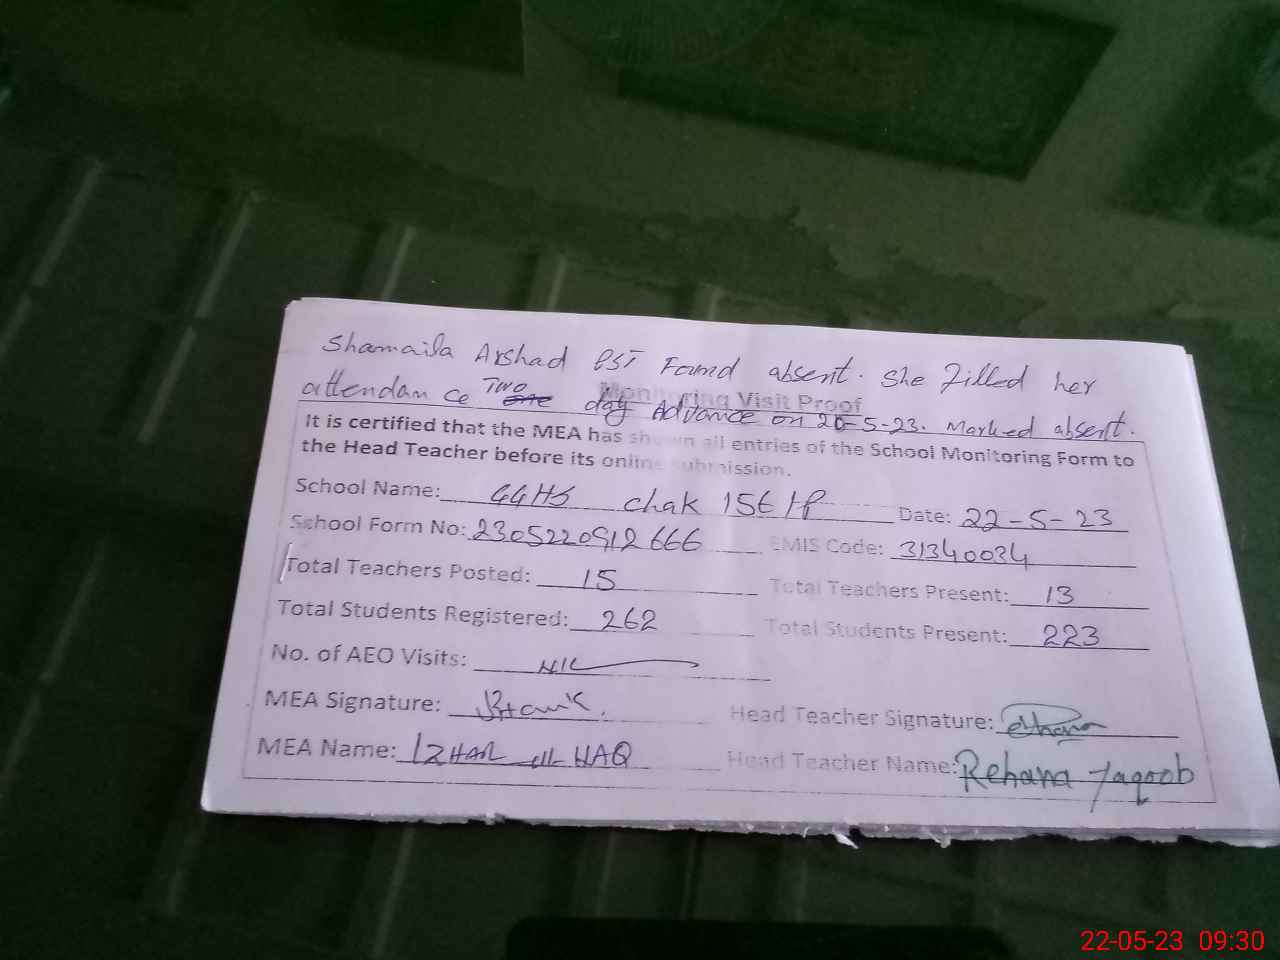 Shamaila Arshad PST Found absent. She filled her
attendance Two one day Advance on 20-5-23. Marked absent.
Monitoring Visit Proof
It is certified that the MEA has shown all entries of the School Monitoring Form to
the Head Teacher before its online submission.
School Name: GGHS chak 156 Date: 22-5-23
School Form No: 2305220912666 EMIS Code: 31340034
Total Teachers Posted: 15 Total Teachers Present: 13
Total Students Registered: 262 Total Students Present: 223
No. of AEO Visits: NIL
MEA Signature: Head Teacher Signature:
MEA Name: IZHAR ul HAQ Head Teacher Name: Rehana Yaqoob
22-05-23 09:30